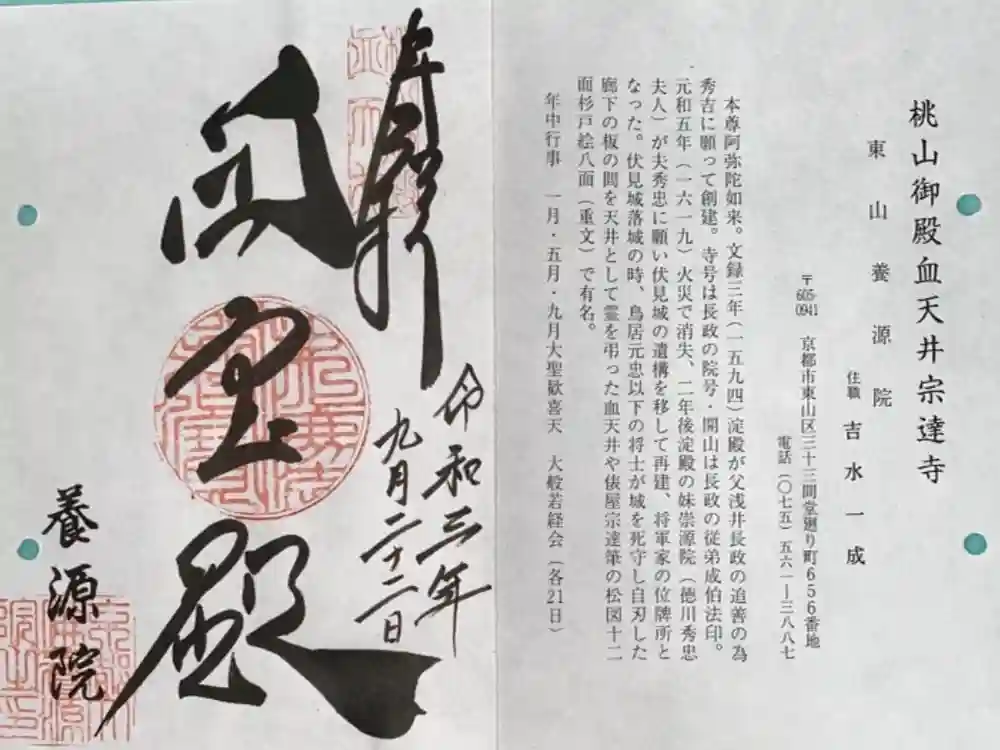 桃山御殿血天井宗達寺
東山養源院
住職 吉水一成
〒605-0941 京都市東山区三十三間堂廻り町656番地
電話(〇七五)五六一ー三八八七
本尊阿弥陀如来。文録三年(一五九四)淀殿が父浅井長政の追善の為
秀吉に願って創建。寺号は長政の院号・開山は長政の従弟成伯法印。
元和五年(一六一九)火災で消失、二年後淀殿の妹崇源院(徳川秀忠
夫人)が夫秀忠に願い伏見城の遺構を移して再建、将軍家の位牌所と
なった。伏見城落城の時、鳥居元忠以下の将士が城を死守し自刃した
廊下の板の間を天井として霊を弔った血天井や俵屋宗達筆の松図十二
面杉戸絵八面(重文)で有名。
年中行事 一月・五月・九月大聖歓喜天 大般若経会(各21日)
奉拝
令和三年
九月二十二日
殿
養源院